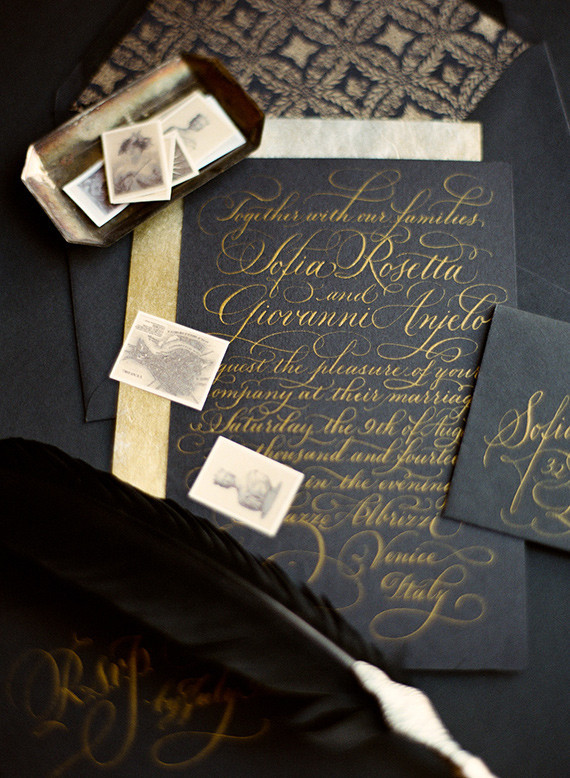 Together with our families,
Sofia Rosetta
and
Giovanni Anjelo
quest the pleasure of your
ompany at their marriag
Saturday the 9th of Aug
thousand and fourtee
in the evening
azze Albrizzi
Venice
Italy
Sofia
32
RSVP
by July